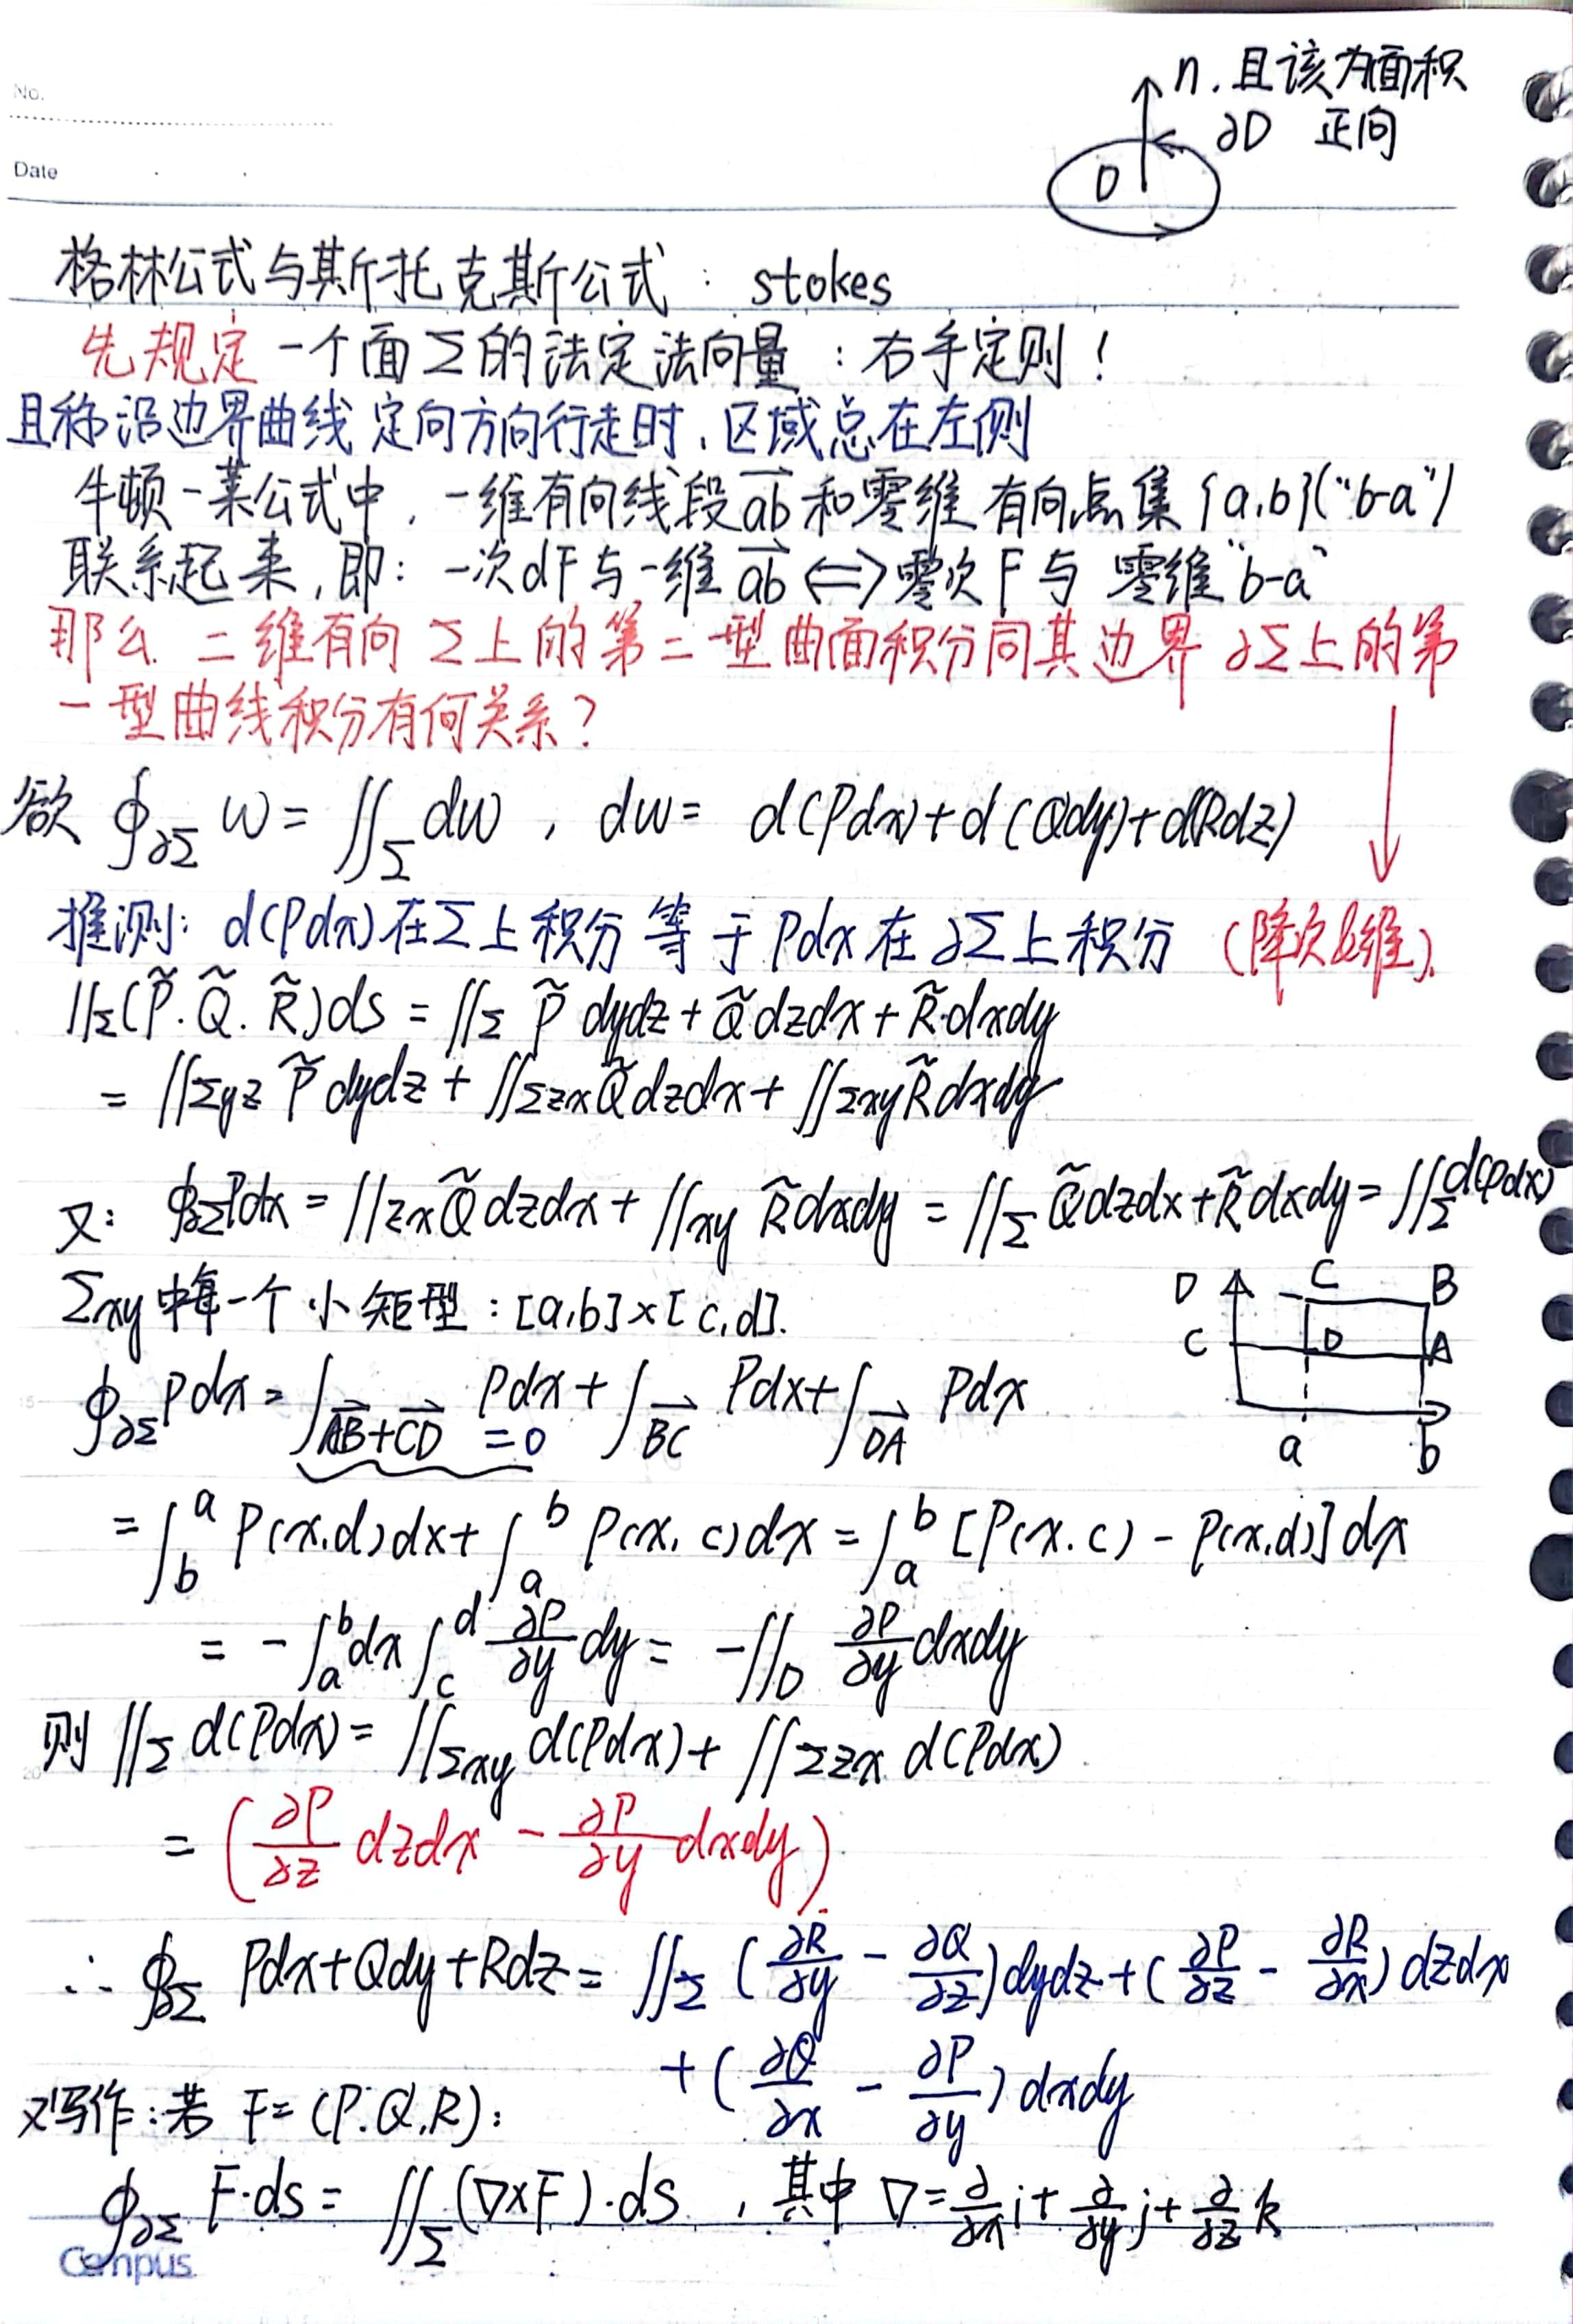 No.
Date
n. 且该为面积
∂D 正向
D
格林公式与斯托克斯公式: stokes
先规定一个面Σ的法定法向量:右手定则!
且称沿边界曲线定向方向行走时,区域总在左侧
牛顿-莱公式中,一维有向线段ab和零维有向点集{a,b}("b-a")
联系起来,即:一次dF与一维ab⟺零次F与零维"b-a"
那么二维有向Σ上的第二型曲面积分同其边界∂Σ上的第
一型曲线积分有何关系?
欲 ∮∂Σ w = ∬Σ dw , dw = d(Pdx)+d(Qdy)+d(Rdz)
推测: d(Pdx)在Σ上积分等于Pdx在∂Σ上积分 (降次&维).
∬Σ(P̃.Q̃.R̃)ds = ∬Σ P̃dydz+Q̃dzdx+R̃dxdy
= ∬Σyz P̃dydz + ∬Σzx Q̃dzdx + ∬Σxy R̃dxdy
又: ∮∂Σ Pdx = ∬zx Q̃dzdx + ∬xy R̃dxdy = ∬Σ Q̃dzdx+R̃dxdy = ∬Σ d(Pdx)
Σxy中每一个小矩型:[a,b]×[c,d].
D C B
C D A
a b
∮∂Σ Pdx = ∫AB+CD Pdx + ∫BC Pdx + ∫DA Pdx
=0
= ∫_b^a P(x,d)dx + ∫_a^b P(x,c)dx = ∫_a^b [P(x.c) - P(x,d)]dx
= -∫_a^b dx ∫_c^d ∂P/∂y dy = -∬D ∂P/∂y dxdy
则 ∬Σ d(Pdx) = ∬Σxy d(Pdx) + ∬Σzx d(Pdx)
= (∂P/∂z dzdx - ∂P/∂y dxdy).
∴ ∮∂Σ Pdx+Qdy+Rdz = ∬Σ (∂R/∂y - ∂Q/∂z)dydz + (∂P/∂z - ∂R/∂x)dzdx
+ (∂Q/∂x - ∂P/∂y)dxdy
又写作:若 F=(P.Q.R):
∮∂Σ F·ds = ∬Σ (∇×F)·ds , 其中 ∇=∂/∂x i + ∂/∂y j + ∂/∂z k
Campus